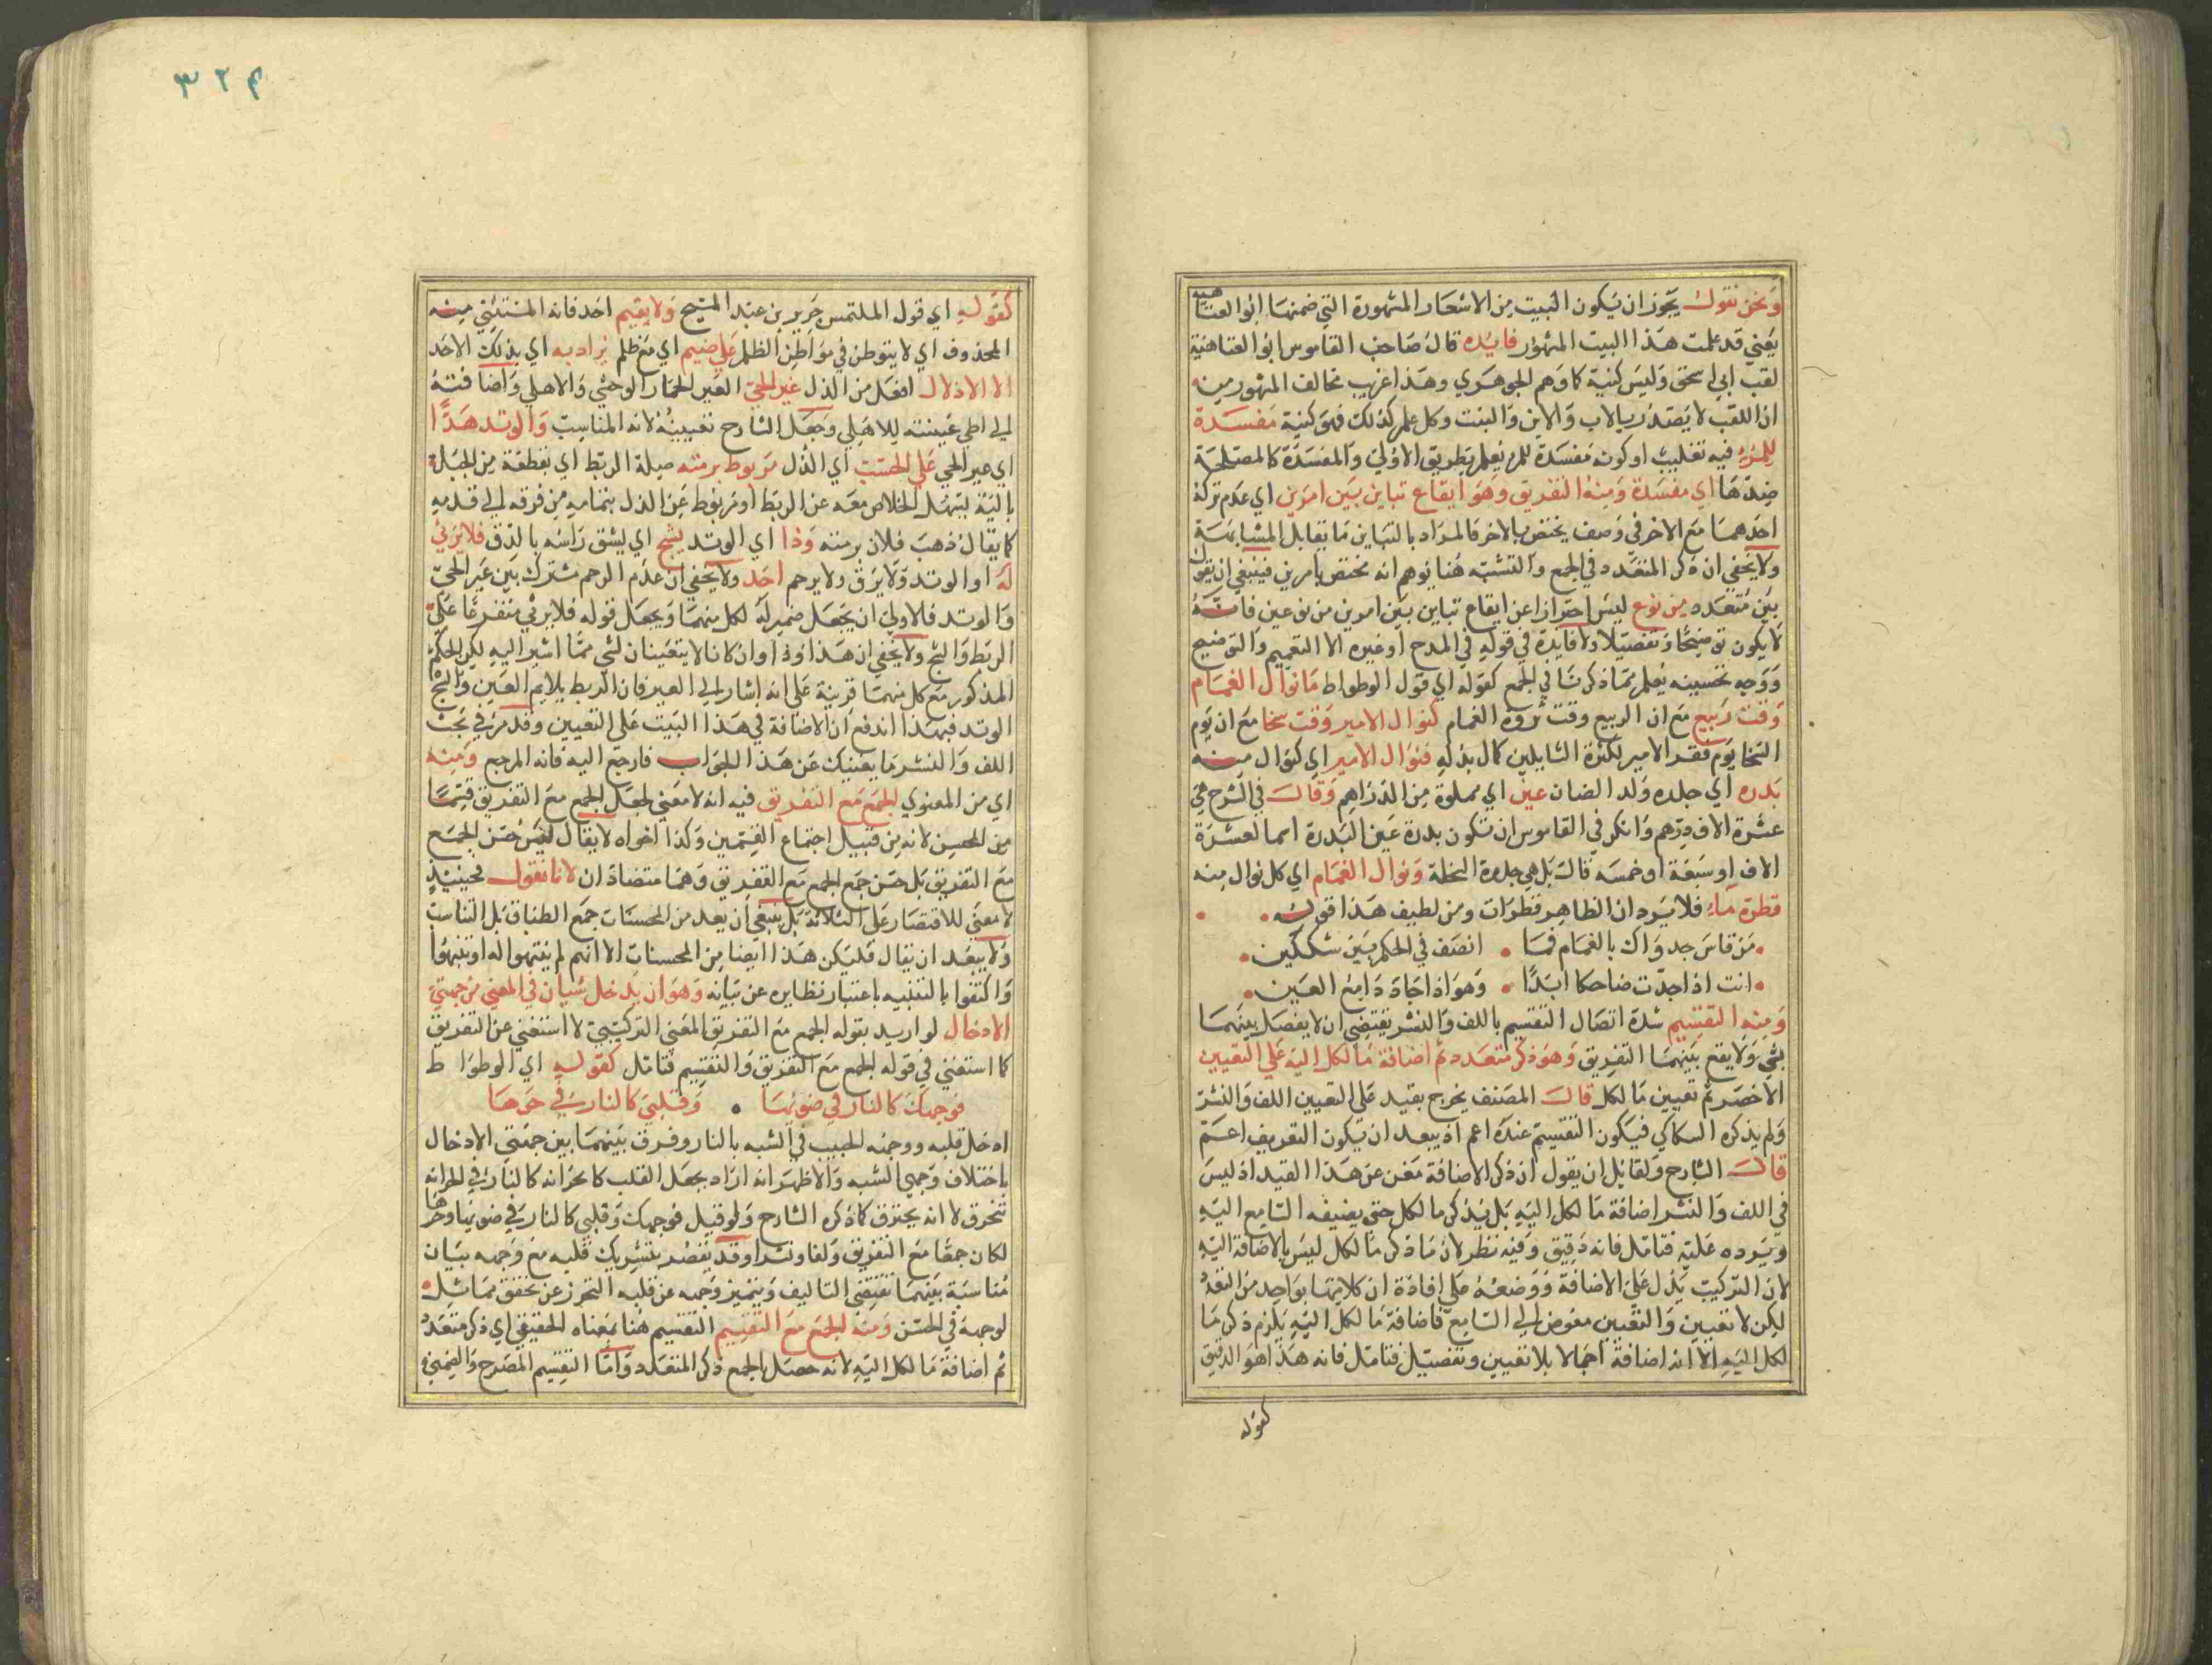 ونحن نقول يجوز ان يكون البيت من الاشعار المشهورة التي ضمنها ابو العتاهية
يعني قد علمت هذا البيت المشهور فايده قال صاحب القاموس ابو العتاهية
لقب ابي اسحق وليس كنية كما وهم الجوهري وهذا غريب مخالف المشهور منه
ان اللقب لا يصدر بالاب والابن والبنت وكل علم كذلك فهو كنية مفسدة
للمرء فيه تغليب او كونه مفسدة للمرء يعلم بطريق الاولى والمفسدة كالمصلحة
ضدها اي مفسدة ومنه التفريق وهو ايقاع تباين بين امرين اي عدم تركه
احدهما مع الاخر في وصف يختص بالاخر فالمراد بالتباين ما يقابل المشابهة
ولا يخفى ان ذكر المتعدد في الجمع والتشبيه هنا يوهم انه مختص بامرين فينبغي ان يقول
بين متعدد من نوع ليس احترازا عن ايقاع تباين بين امرين من نوعين فانه
لا يكون توضيحا وتفصيلا ولا فايدة في قوله في المدح او غيره الا التعميم والتوضيح
ووجه تحسينه يعلم مما ذكرنا في الجمع كقوله اي قول الوطواط ما نوال الغمام
وقت ربيع مع ان الربيع وقت ثروة الغمام كنوال الامير وقت سخا مع ان يوم
السخا يوم فقر الامير لكثرة السايلين كمال بذله فنوال الامير اي كنوال منه
بدرة اي جلده ولد الضان عين اي مملوة من الدراهم وقال في الشرح هي
عشرة الاف درهم وانكر في القاموس ان تكون بدرة عين البدرة اسما لعشرة
الاف او سبعة او خمسه قالت بل هي جلدة السخلة ونوال الغمام اي كل نوال منه
قطرة ماء فلا يرد ان الظاهر قطرات ومن لطيف هذا قوله
من قاس جدواك بالغمام فما انصف في الحكم بين شكلين
انت اذا جدت ضاحكا ابدا وهو اذا جاد دامع العين
ومنه التقسيم شدة اتصال التقسيم باللف والنشر يقتضي ان لا يفصل بينهما
بشي ولا يقع بينهما التفريق وهو ذكر متعدد ثم اضافة ما لكل اليه على التعيين
الاخصر ثم تعيين ما لكل قال المصنف يخرج بقيد على التعيين اللف والنشر
ولم يذكره السكاكي فيكون التقسيم عنده اعم اذ يبعد ان يكون التعريف اعم
قال الشارح ولقايل ان يقول ان ذكر الاضافة مغن عن هذا القيد اذ ليس
في اللف والنشر اضافة ما لكل اليه بل يذكر ما لكل حتى يضيفه السامع اليه
ويرده عليه فتامل فانه دقيق وفيه نظر لان ما ذكر ما لكل ليس بالاضافة اليه
لان التركيب يدل على الاضافة ووضعه على افادة ان كلا منها بواحد من التعدد
لكن لا تعيين والتعيين مفوض الى السامع فاضافة ما لكل اليه يلزم ذكر ما
لكل اليه الا انه اضافة اجمالا بلا تعيين وتفصيل فتامل فانه هذا هو الدقيق
كقوله
٣٢٤
كقوله اي قول الملتمس جرير بن عبد المسيح ولا يقيم احد فانه المستثنى منه
المحذوف اي لا يتوطن في مواطن الظلم على ضيم اي مع ظلم يراد به اي بذلك الاحد
الا الاذلال افعل من الذل عير الحي العير الحمار الوحشي والاهلي واضافته
الى الحي عينته للاهلي وجعل الشارح تعيينه لانه المناسب والوتد هذا
اي عير الحي على الخسف اي الذل مربوط برمته صيلة الربط اي بقطعة من الحبل
بالية يسهل الخلاص معه عن الربط او مربوط عن الذل بتمامه من فرقه الى قدمه
كما يقال ذهب فلان برمته وذا اي الوتد يشج اي يشق راسه بالدق فلا يرثي
له او الوتد ولا يرق ولا يرحم احد ولا يخفى ان عدم الرحم مشترك بين عير الحي
والوتد فالاولى ان يجعل ضمير له لكل منهما ويجعل قوله فلا يرثي متفرعا على
الربط والشج ولا يخفى ان هذا وذا وان كانا لا يتعينان لشي مما اشير اليه لكن الحكم
المذكور مع كل منهما قرينة على انه اشار الى العير فان الربط يلايم العير والشج
الوتد فبهذا اندفع ان الاضافة في هذا البيت على التعيين وقد مر في بحث
اللف والنشر ما يغنيك عن هذا الجواب فارجع اليه فانه المرجع ومنه
اي من المعنوي الجمع مع التفريق فيه انه لا معنى لجعل الجمع مع التفريق قسما
من المحسن لانه من قبيل اجتماع القسمين وكذا اخواه لا يقال ليس حسن الجمع
مع التفريق بل حسن جمع الجمع مع التفريق وهما متضادان لانا نقول فحينئذ
لا معنى للاقتصار على الثلاثة بل ينبغي ان يعد من المحسنات جمع الطباق بل التناسب
ولا يبعد ان يقال فليكن هذا ايضا من المحسنات الا انهم لم ينتبهوا له او تنبهوا
واكتفوا بالتنبيه باعتبار نظايره عن بيانه وهو ان يدخل شيان في المعنى من جهتي
الادخال لو اريد بقوله الجمع مع التفريق المعنى التركيبي لا استغنى عن التفريق
كما استغنى في قوله الجمع مع التفريق والتقسيم فتامل كقوله اي الوطواط
فوجهك كالنار في ضوئها وقلبي كالنار في حرها
ادخل قلبه ووجنه الحبيب في الشبه بالنار وفرق بينهما بين جهتي الادخال
باختلاف وجهي الشبه والاظهر انه اراد بجعل القلب كالحر انه كالنار في الحر انه
تحرق لا انه يحترق كما ذكره الشارح ولو قيل فوجهك وقلبي كالنار في ضوئها وحرها
لكان جمعا مع التفريق ولفا ونشرا وقد يقصد بتشريك قلبه مع وجهه بيان
مناسبة بينهما تقتضي التاليف وبتميز وجهه عن قلبه التحرز عن تحقق مماثل
لوجهه في الحسن ومنه الجمع مع التقسيم التقسيم هنا بمعناه الحقيقي اي ذكر متعدد
ثم اضافة ما لكل اليه لانه حصل بالجمع ذكر المتعدد واما التقسيم المصرح والضمني